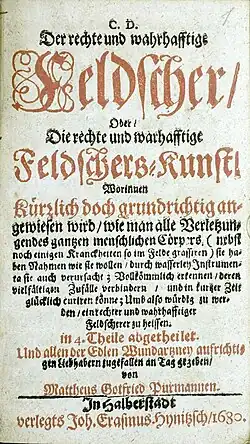 C. D.
Der rechte und wahrhafftige
Feldscher/
Oder/
Die rechte und warhafftige
Feldschers-Kunst/
Worinnen
Kürzlich doch grundrichtig an-
gewiesen wird/ wie man alle Verletzun-
gen des gantzen menschlichen Cörpers, (nebst
noch einigen Kranckheiten so im Felde grassiren) sie ha-
ben Nahmen wie sie wollen/ durch wasserley Instrumen-
ta sie auch verursacht; Vollkömmlich erkennen/ deren
vielfältigen Zufälle verhindern/ und in kurtzer Zeit
glücklich curiren könne; Und also würdig zu wer-
den/ ein rechter und wahrhafftiger
Feldscherer zu heissen.
in 4. Theile abgetheilet.
Und allen der Edlen Wundartzney aufrichti-
gen Liebhabern zugefallen an Tag gegeben/
von
Mattheus Gotfried Purmannen.
In Halberstadt
verlegts Joh. Erasmus Hynitzsch/ 1680.